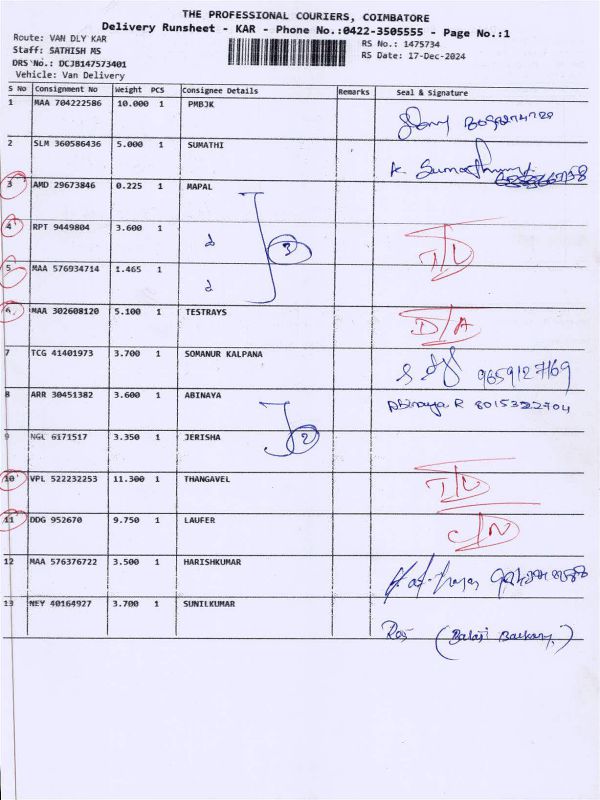 THE PROFESSIONAL COURIERS, COIMBATORE
Delivery Runsheet - KAR - Phone No.:0422-3505555 - Page No.:1
Route: VAN DLY KAR
RS No.: 1475734
Staff: SATHISH MS
RS Date: 17-Dec-2024
DRS No.: DCJB147573401
Vehicle: Van Delivery
S No Consignment No Weight PCS Consignee Details Remarks Seal & Signature
1 MAA 704222586 10.000 1 PMBJK
2 SLM 360586436 5.000 1 SUMATHI
3 AMD 29673846 0.225 1 MAPAL
4 RPT 9449804 3.600 1 3
5 MAA 576934714 1.465 1
6 MAA 302608120 5.100 1 TESTRAYS D/A
7 TCG 41401973 3.700 1 SOMANUR KALPANA 9659127169
8 ARR 30451382 3.600 1 ABINAYA Abinaya R 8015322704
9 NGL 6171517 3.350 1 JERISHA 2
10 VPL 522232253 11.300 1 THANGAVEL
11 DDG 952670 9.750 1 LAUFER
12 MAA 576376722 3.500 1 HARISHKUMAR
13 NEY 40164927 3.700 1 SUNILKUMAR